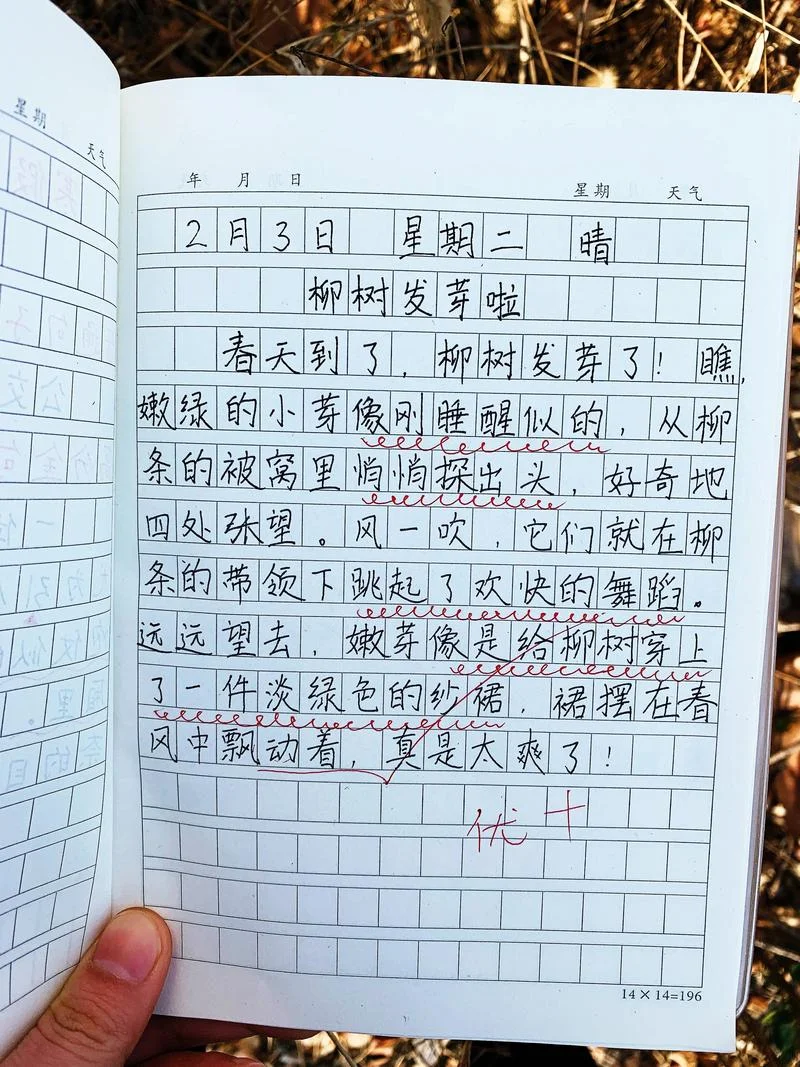 星期
天气
年 月 日 星期 天气
2月3日 星期二 晴
柳树发芽啦
春天到了,柳树发芽了!瞧,
嫩绿的小芽像刚睡醒似的,从柳
条的被窝里悄悄探出头,好奇地
四处张望。风一吹,它们就在柳
条的带领下跳起了欢快的舞蹈。
远远望去,嫩芽像是给柳树穿上
了一件淡绿色的纱裙,裙摆在春
风中飘动着,真是太爽了!
优+
14×14=196